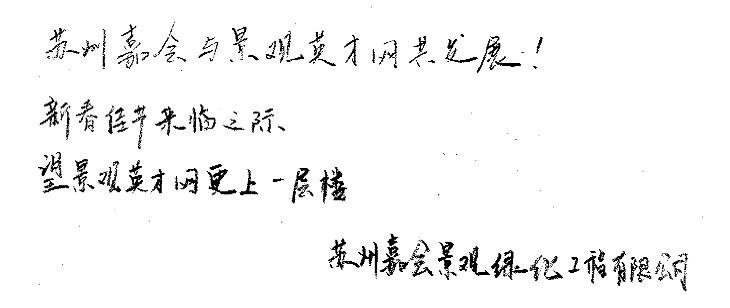 苏州嘉会与景观英才网共发展！
新春佳节来临之际、
望景观英才网更上一层楼
苏州嘉会景观绿化工程有限公司